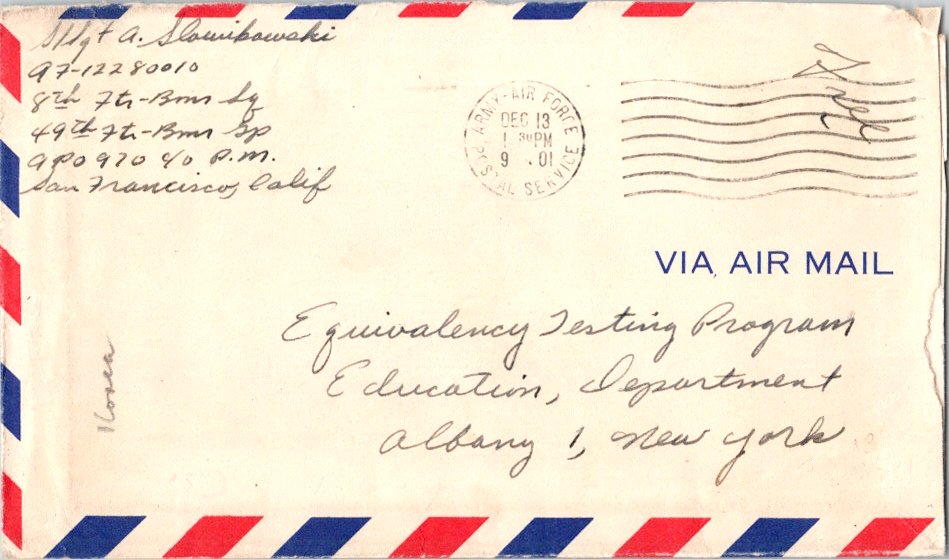 S/Sgt A. Slowikowski
A7-12280010
8th Ftr-Bmr Sq
49th Ftr-Bmr Gp
APO 970 c/o P.M.
San Francisco, Calif
ARMY-AIR FORCE
DEC 13
1 30 PM
9 01
POSTAL SERVICE
Free
VIA AIR MAIL
Equivalency Testing Program
Education, Department
Albany 1, New York
Korea